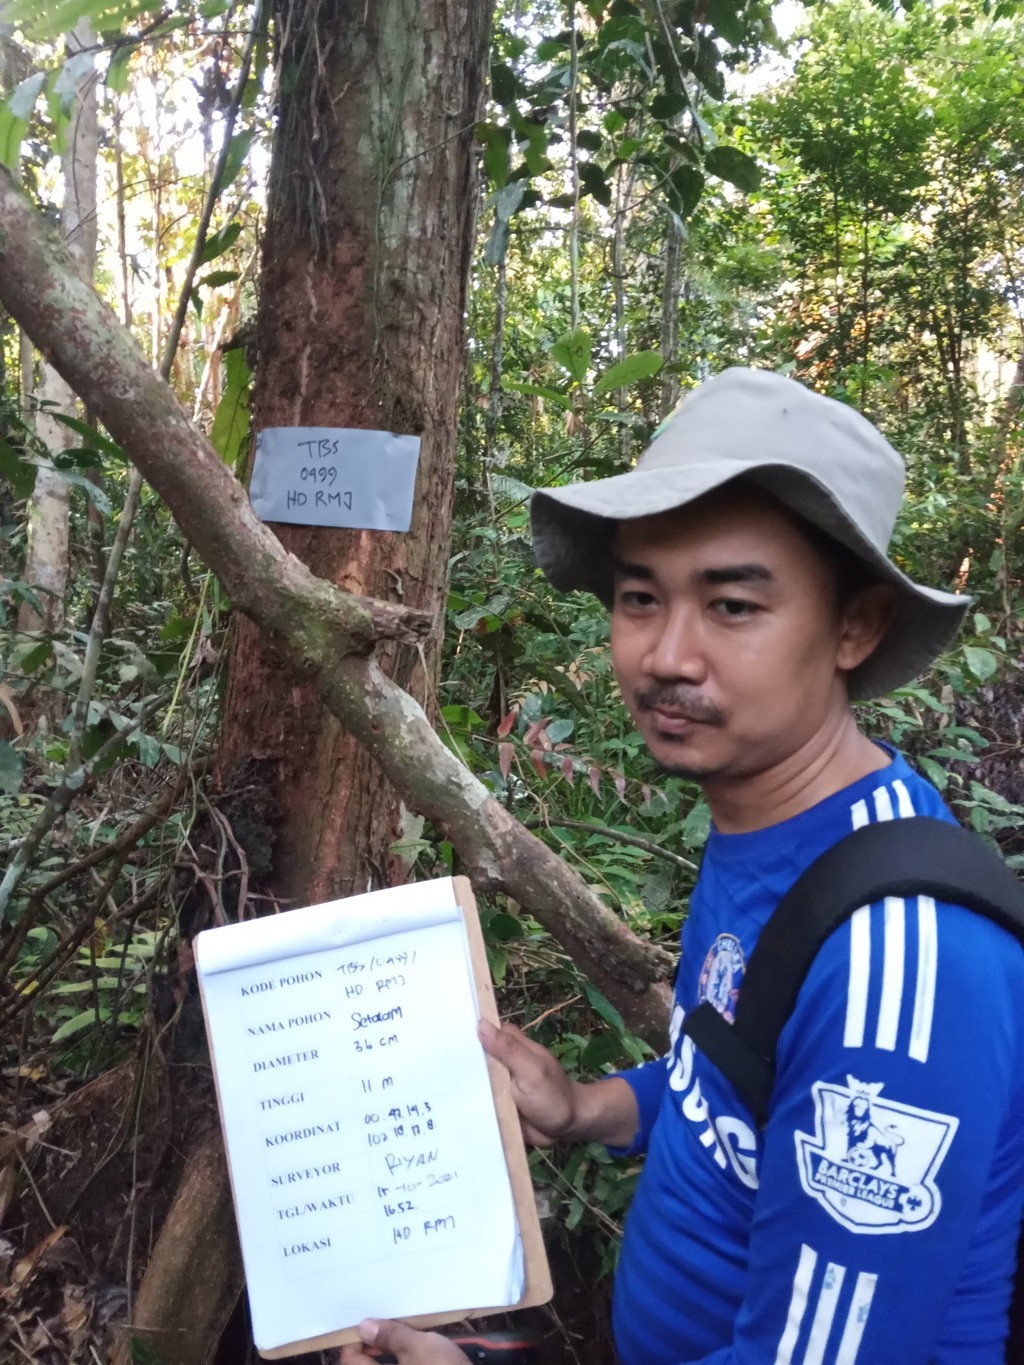 TBS
0499
HD RMJ
KODE POHON TBS/0499/
HD RMJ
NAMA POHON Setalam
DIAMETER 36 CM
TINGGI 11 M
KOORDINAT 00.47.19.3
102.18.17.8
SURVEYOR RIYAN
TGL/WAKTU -10-2021
1652
LOKASI HD RMJ
CHELSEA
SUNG
BARCLAYS
PREMIER LEAGUE